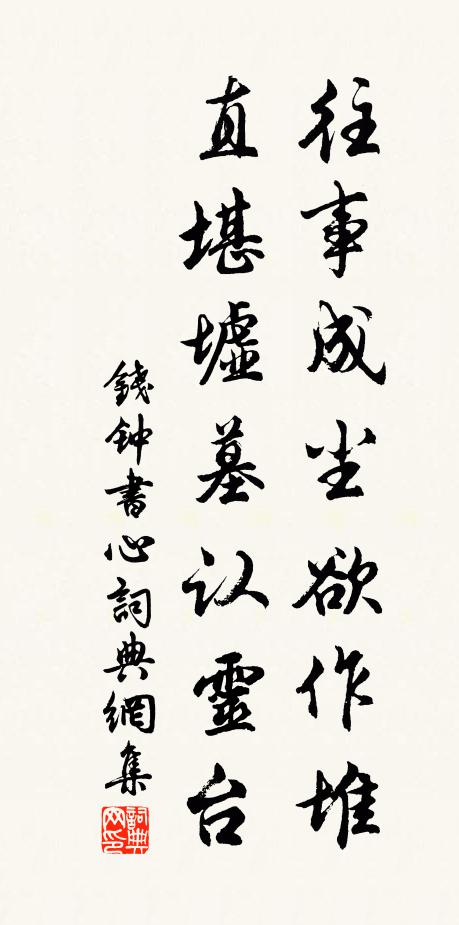 往事成尘欲作堆
直堪墟墓认靈台
錢钟書心詞典網集
詞典网印